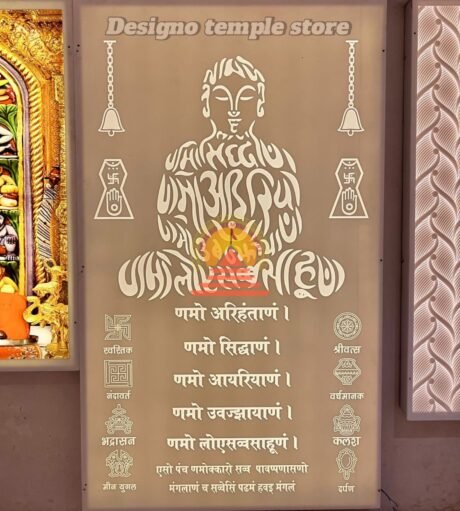 Designo temple store
णमो सिद्धाणं
णमो आइरियाणं
णमो लोएसव्वसाहूणं
णमो अरिहंताणं ।
णमो सिद्धाणं ।
णमो आयरियाणं ।
णमो उवज्झायाणं ।
णमो लोएसव्वसाहूणं ।
स्वस्तिक
श्रीवत्स
नंदावर्त
वर्धमानक
भद्रासन
कलश
मीन युगल
दर्पण
एसो पंच णमोक्कारो सव्व पावप्पणासणो
मंगलाणं च सव्वेसिं पढमं हवइ मंगलं